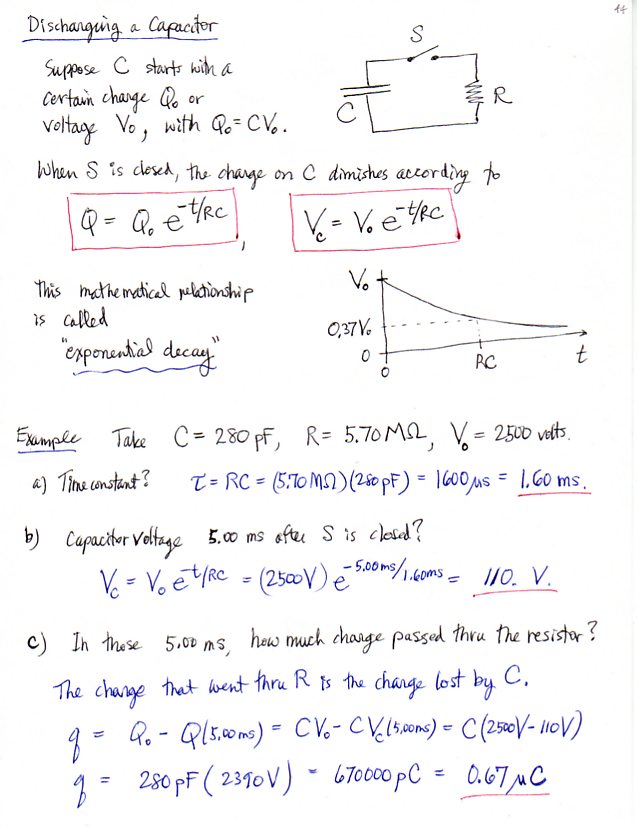 44
Discharging a Capacitor
Suppose C starts with a
certain charge Q₀ or
voltage V₀, with Q₀ = CV₀.
S
C
R
When S is closed, the charge on C dimishes according to
Q = Q₀ e^-t/RC , V_c = V₀ e^-t/RC
This mathematical relationship
is called
"exponential decay"
V₀
0.37V₀
0
0
RC
t
Example Take C = 280 pF, R = 5.70 MΩ, V₀ = 2500 volts.
a) Time constant? τ = RC = (5.70 MΩ)(280 pF) = 1600 μs = 1.60 ms.
b) Capacitor voltage 5.00 ms after S is closed?
V_c = V₀ e^-t/RC = (2500V) e^-5.00ms/1.60ms = 110. V.
c) In those 5.00 ms, how much charge passed thru the resistor?
The charge that went thru R is the change lost by C.
q = Q₀ - Q(5.00ms) = CV₀ - CV_c(5.00ms) = C(2500V - 110V)
q = 280 pF (2390 V) = 670000 pC = 0.67 μC